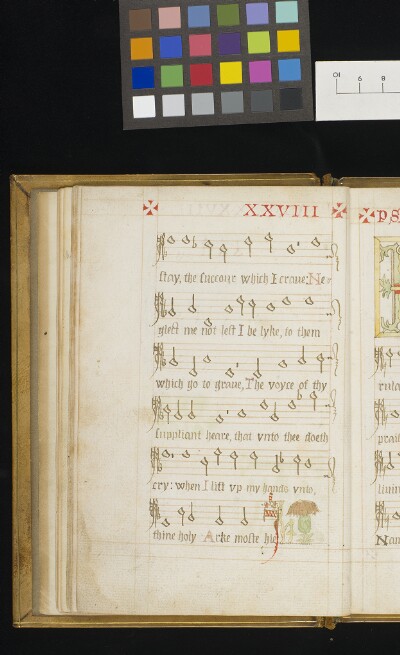 XXVIII
PS
stay, the succour which I craue: Ne-
glect me not lest I be lyke, to them
which go to graue, The voyce of thy
suppliant heare, that vnto thee doeth
cry: when I lift vp my hands vnto,
thine holy Arke moste hie